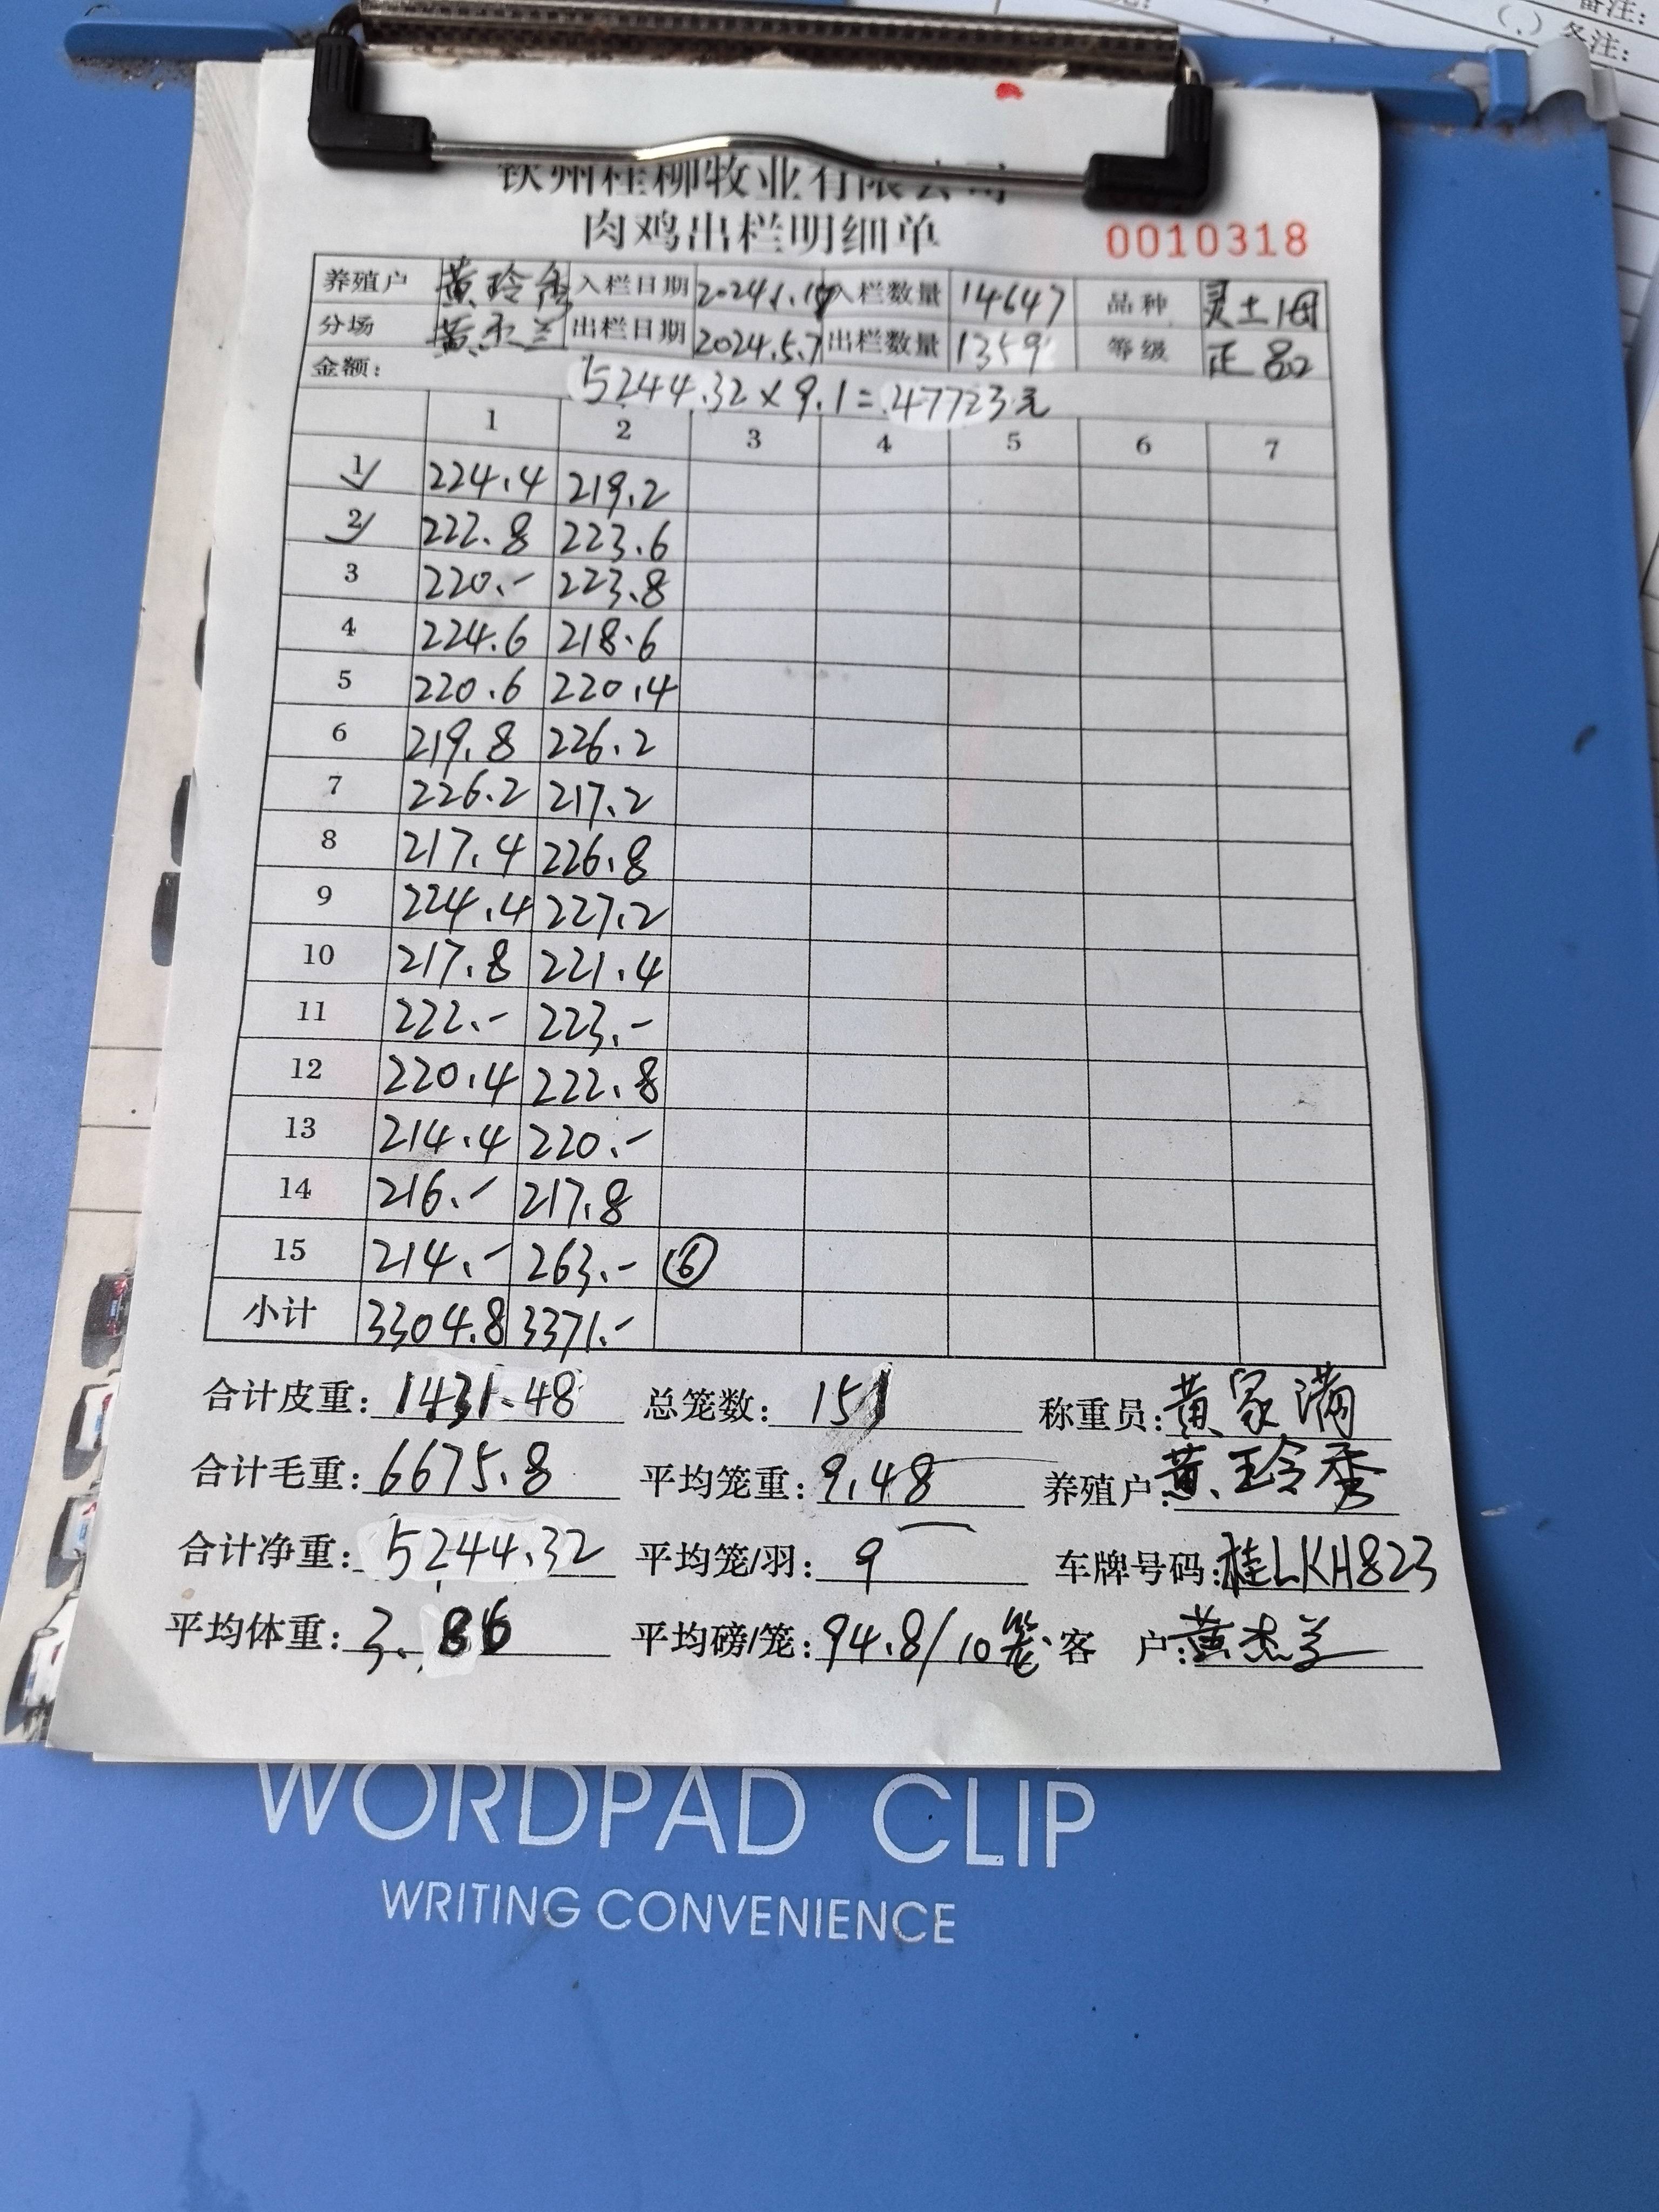 备注:
(、) 备注:
钦州桂柳牧业有限公司
肉鸡出栏明细单 0010318
养殖户 黄玲秀 入栏日期 2024.1. 入栏数量 14647 品种 灵土
分场 黄杰兰 出栏日期 2024.5.7 出栏数量 1359 等级 正品
金额: 5244.32×9.1=47723元
1 2 3 4 5 6 7
1 224.4 219.2
2 222.8 223.6
3 220.- 223.8
4 224.6 218.6
5 220.6 220.4
6 219.8 226.2
7 226.2 217.2
8 217.4 226.8
9 224.4 227.2
10 217.8 221.4
11 222.- 223.-
12 220.4 222.8
13 214.4 220.-
14 216.- 217.8
15 214.- 263.- ⑥
小计 3304.8 3371.-
合计皮重: 1431.48 总笼数: 151 称重员: 黄家满
合计毛重: 6675.8 平均笼重: 9.48 养殖户: 黄玲秀
合计净重: 5244.32 平均笼/羽: 9 车牌号码: 桂LKH823
平均体重: 3.86 平均磅/笼: 94.8/10笼 客户: 黄杰兰
WORDPAD CLIP
WRITING CONVENIENCE